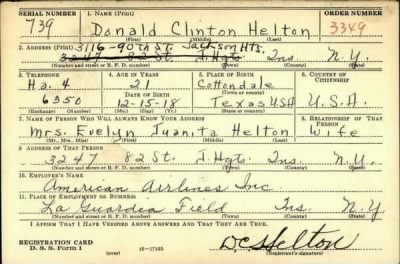 SERIAL NUMBER 1. NAME (Print) ORDER NUMBER
739 Donald Clinton Helton 3349
(First) (Middle) (Last)
2. ADDRESS (Print) 3116-90th St. Jackson Hts.
3247 82 St. J. Hgts. Ins. N.Y.
(Number and street or R. F. D. number) (Town) (County) (State)
3. TELEPHONE 4. AGE IN YEARS 5. PLACE OF BIRTH 6. COUNTRY OF CITIZENSHIP
Ha. 4 21 Cottondale
DATE OF BIRTH (Town or county)
6350 12-15-18 Texas USA U.S.A.
(Exchange) (Number) (Mo.) (Day) (Yr.) (State or country)
7. NAME OF PERSON WHO WILL ALWAYS KNOW YOUR ADDRESS 8. RELATIONSHIP OF THAT PERSON
Mrs. Evelyn Juanita Helton Wife
(Mr., Mrs., Miss) (First) (Middle) (Last)
9. ADDRESS OF THAT PERSON
3247 82 St. J. Hgts. Ins. N.Y.
(Number and street or R. F. D. number) (Town) (County) (State)
10. EMPLOYER'S NAME
American Airlines Inc.
11. PLACE OF EMPLOYMENT OR BUSINESS
La Guardia Field Ins. N.Y
(Number and street or R. F. D. number) (Town) (County) (State)
I AFFIRM THAT I HAVE VERIFIED ABOVE ANSWERS AND THAT THEY ARE TRUE.
REGISTRATION CARD
D. S. S. Form 1 (over) 16-17105 D C Helton
(Registrant's signature)